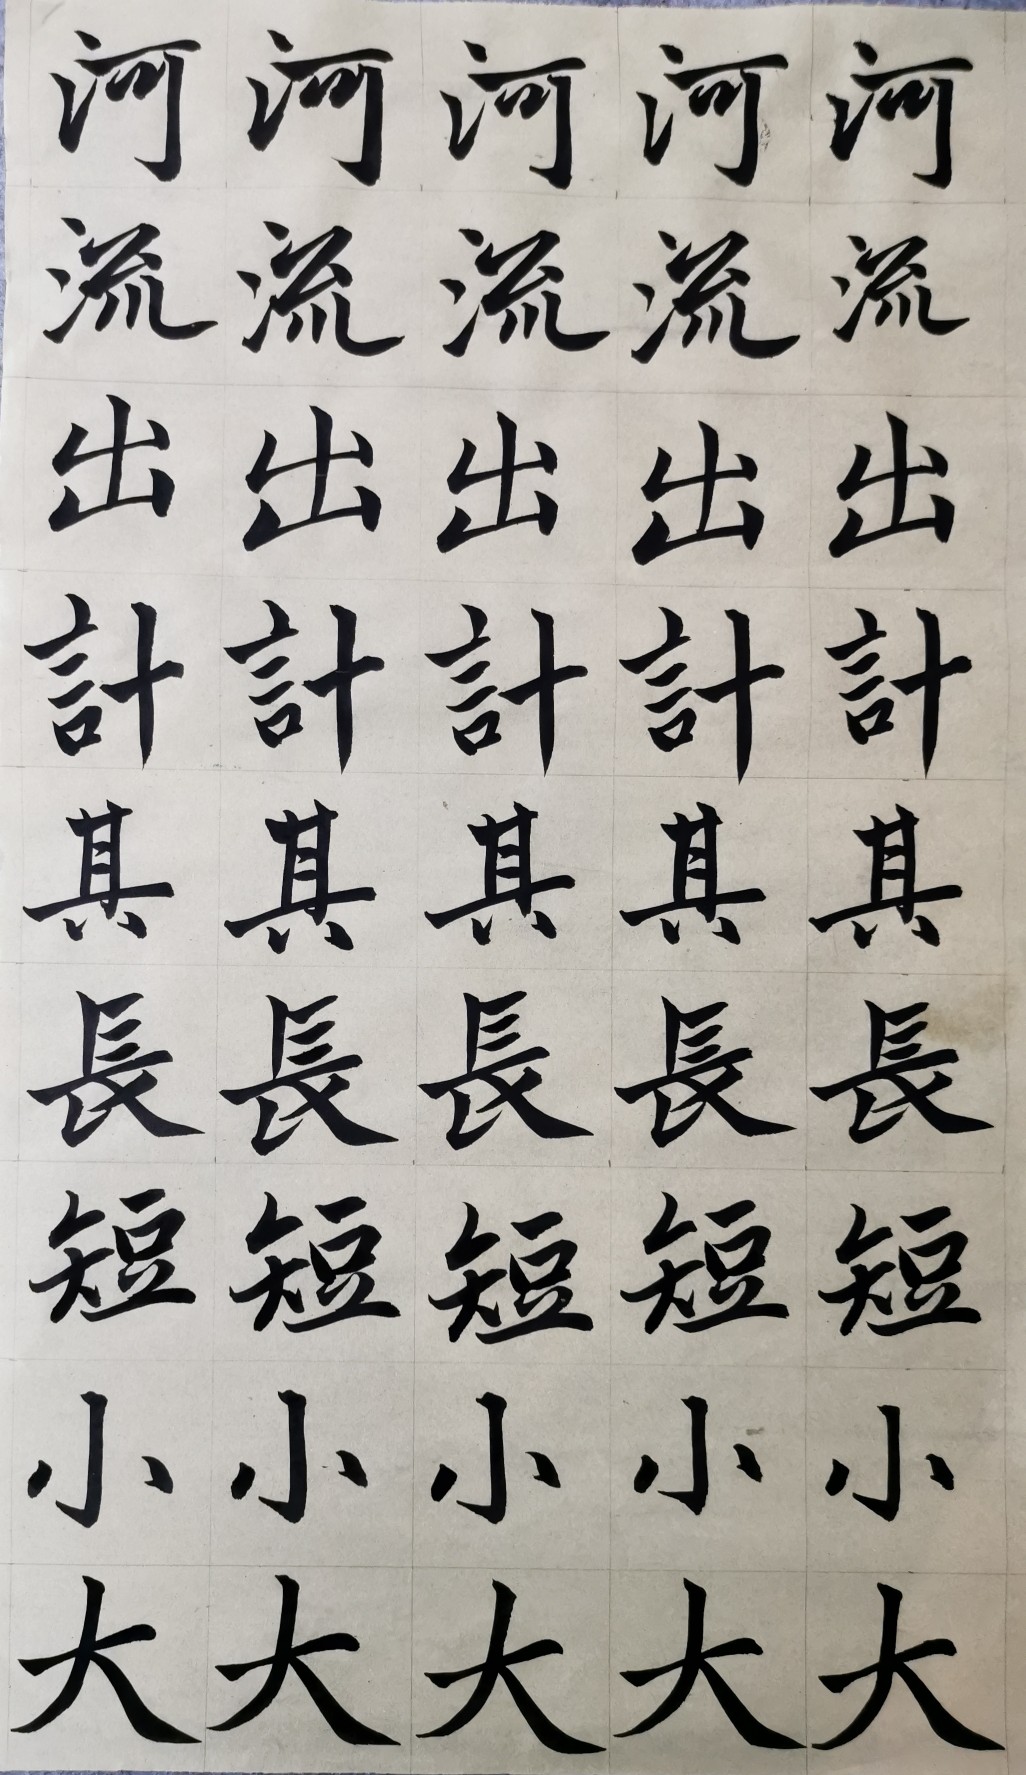 河河河河河
流流流流流
出出出出出
計計計計計
其其其其其
長長長長長
短短短短短
小小小小小
大大大大大